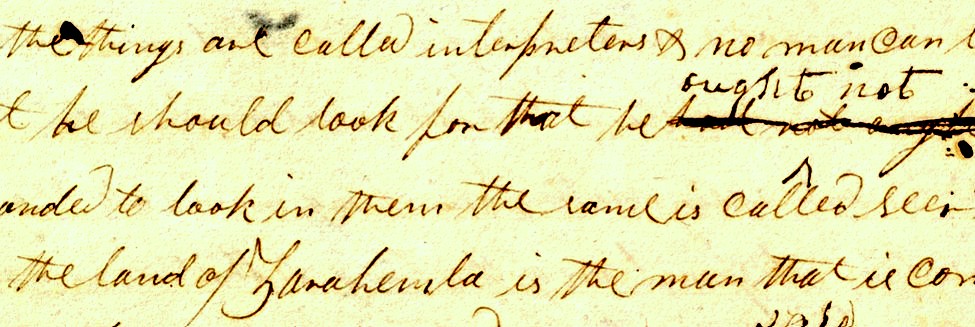 the things are called interpreters & no man can
ought not
he should look for that he hall not ought
anded to look in them the same is called seer
the land of Zarahemla is the man that is com